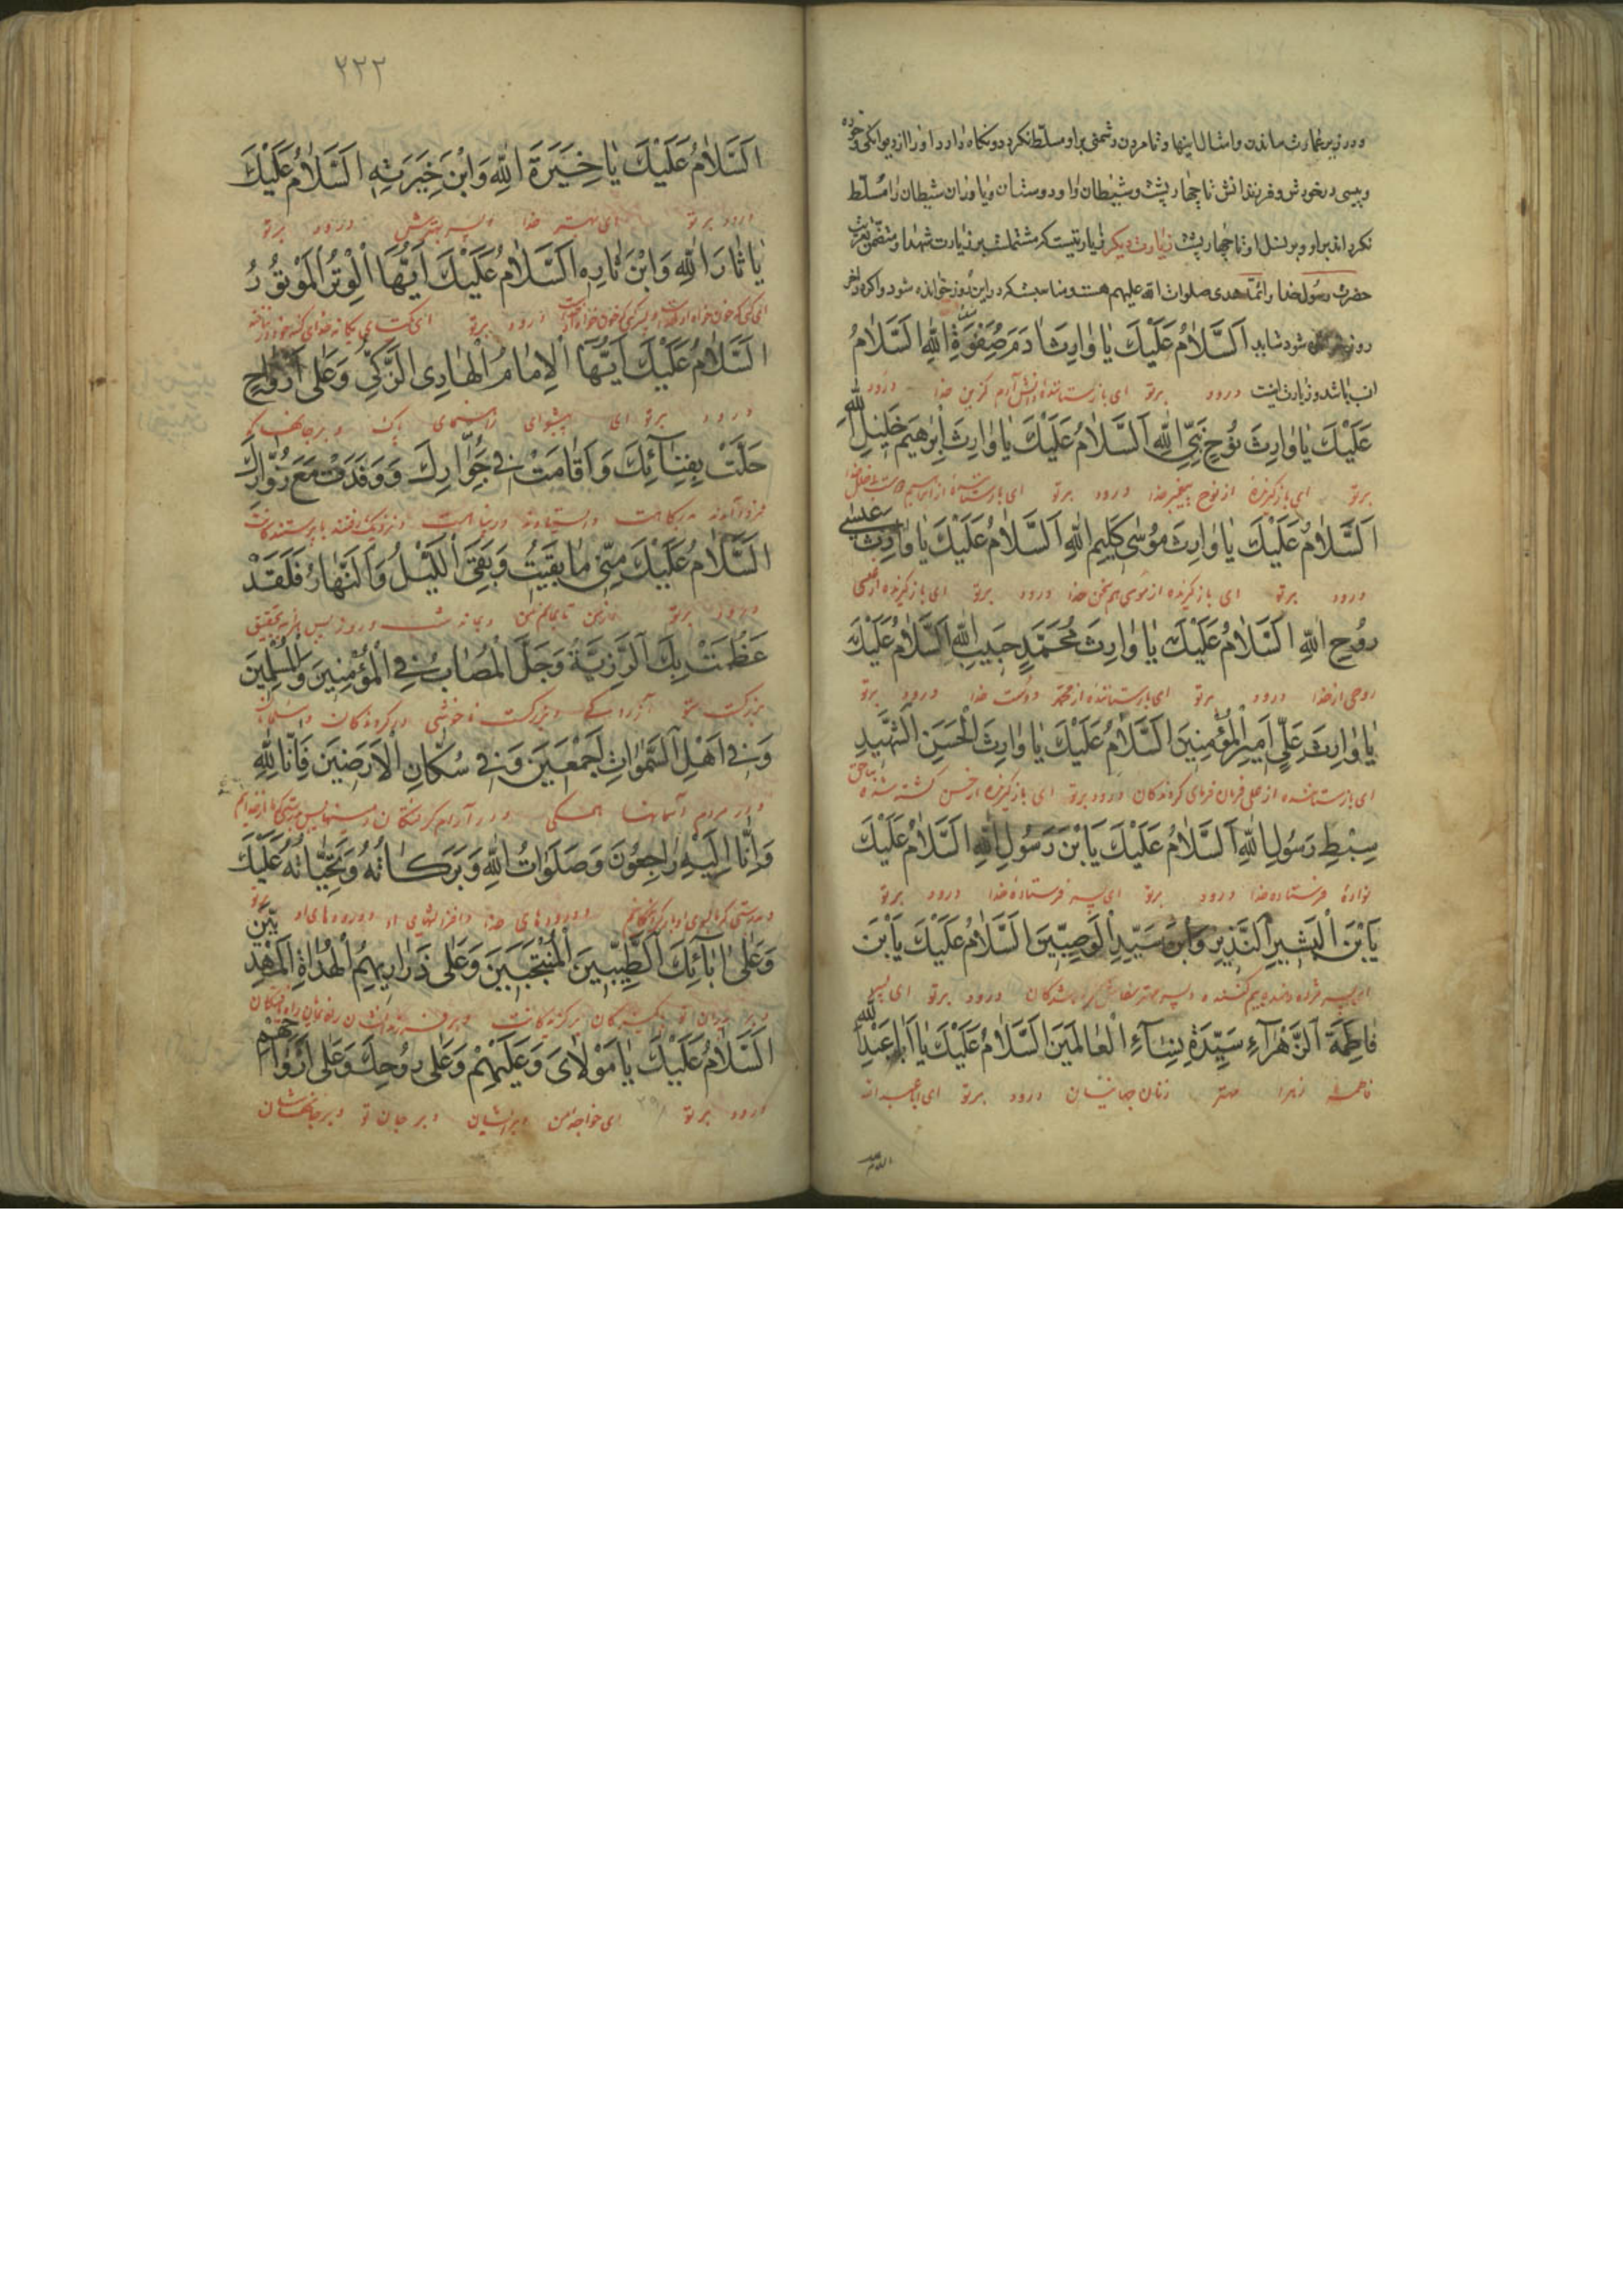 و در زیر عمارت ماندن و امثال اینها و تا مردن دشمنی بر او مسلط نکردد و نکاه دارد او را از دیوانکی و خوره
و پیسی در خودش و فرزندانش تا چهار پشت و شیطان را و دوستان و یاوران شیطان را مسلط
نکرداند بر او و بر نسل او تا چهار پشت زیارت دیکر زیارتیست که مشتملست بر زیارت شهدا و متضمن تعزیت
حضرت رسول خدا و ائمه هدی صلوات الله علیهم هست و مناسبست که در این روز خوانده شود و اکر در اخر
روز شود شاید اَلسَّلامُ عَلَيْكَ يا وارِثَ ادَمَ صِفْوَةِ اللهِ اَلسَّلامُ
انسب باشد و زیارت اینست درود برتو ای بازستاننده دانش آدم کزین خدا درود
عَلَيْكَ يا وارِثَ نُوحٍ نَبِيِّ اللهِ اَلسَّلامُ عَلَيْكَ يا وارِثَ اِبْرهيمَ خَليلِ اللهِ
برتو ای بازکیرنده از نوح پیغمبر خدا درود برتو ای بازستاننده از ابراهیم دوست خدا
اَلسَّلامُ عَلَيْكَ يا وارِثَ مُوسى كَليمِ اللهِ اَلسَّلامُ عَلَيْكَ يا وارِثَ عيسى
درود برتو ای بازکیرنده از موسی هم سخن خدا درود برتو ای بازکیرنده از عیسی
رُوحِ اللهِ اَلسَّلامُ عَلَيْكَ يا وارِثَ مُحَمَّدٍ حَبيبِ اللهِ اَلسَّلامُ عَلَيْكَ
روحی از خدا درود برتو ای بازستاننده از محمد دوست خدا درود برتو
يا وارِثَ عَلِيٍّ اَميرِ الْمُؤْمِنينَ اَلسَّلامُ عَلَيْكَ يا وارِثَ الْحَسَنِ الشَّهيدِ
ای بازستاننده از علی فرمان فرمای کروندکان درود برتو ای بازکیرنده از حسن کشته شده بناحق
سِبْطِ رَسُولِ اللهِ اَلسَّلامُ عَلَيْكَ يَا بْنَ رَسُولِ اللهِ اَلسَّلامُ عَلَيْكَ
نواده فرستاده خدا درود برتو ای پسر فرستاده خدا درود برتو
يَا بْنَ الْبَشيرِ النَّذيرِ وَابْنَ سَيِّدِ الْوَصِيّينَ اَلسَّلامُ عَلَيْكَ يَا بْنَ
ای پسر مژده دهنده بیم کننده و پسر مهتر درود برتو ای پسر
فاطِمَةَ الزَّهْراءِ سَيِّدَةِ نِساءِ الْعالَمينَ اَلسَّلامُ عَلَيْكَ يا اَبا عَبْدِ اللهِ
فاطمه زهرا مهتر زنان جهانیان درود برتو ای ابا عبدالله
السلام
٢٢٢
اَلسَّلامُ عَلَيْكَ يا خِيَرَةَ اللهِ وَابْنَ خِيَرَتِهِ اَلسَّلامُ عَلَيْكَ
درود برتو ای بهتر خدا و پسر بهترش درود برتو
يا ثارَ اللهِ وَابْنَ ثارِهِ اَلسَّلامُ عَلَيْكَ اَيُّهَا الْوِتْرُ الْمَوْتُورُ
ای کسی که خون خواه او خداست و پسر کسی که خون خواه او خداست درود برتو
اَلسَّلامُ عَلَيْكَ اَيُّهَا الْاِمامُ الْهادِى الزَّكِيُّ وَعَلى اَرْواحٍ
درود برتو ای پیشوای راهنمای پاک و بر جانها که
حَلَّتْ بِفِنائِكَ وَاَقامَتْ فى جَوارِكَ وَوَفَدَتْ مَعَ زُوّارِكَ
فرود آمدند بدرکاهت و ایستادند در پناهت
اَلسَّلامُ عَلَيْكَ مِنّى ما بَقيتُ وَبَقِىَ اللَّيْلُ وَالنَّهارُ فَلَقَدْ
درود برتو از من تا بمانم من و بماند شب و روز پس هر آینه بتحقیق
عَظُمَتْ بِكَ الرَّزِيَّةُ وَجَلَّ الْمُصابُ فِى الْمُؤْمِنينَ وَالْمُسْلِمينَ
بزرکست بتو و بزرکست ناخوشی در کروندکان و مسلمانان
وَفى اَهْلِ السَّمواتِ اَجْمَعينَ وَفى سُكّانِ الْاَرَضينَ فَاِنّا لِلّهِ
و در مردم آسمانها همکی و در آرام کرفتکان زمینها
وَاِنّا اِلَيْهِ راجِعُونَ وَصَلَواتُ اللهِ وَبَرَكاتُهُ وَتَحِيّاتُهُ عَلَيْكَ
و درودهای خدا و افزایشهای او و درودهای او برتو
وَعَلى ابائِكَ الطَّيِّبينَ الْمُنْتَجَبينَ وَعَلى ذَراريهِمُ الْهُداةِ الْمَهْدِيّينَ
و بر پدران تو
اَلسَّلامُ عَلَيْكَ يا مَوْلاىَ وَعَلَيْهِمْ وَعَلى رُوحِكَ وَعَلى اَرْواحِهِمْ
درود برتو ای خواجه من و برایشان و بر جان تو و بر جانهاشان